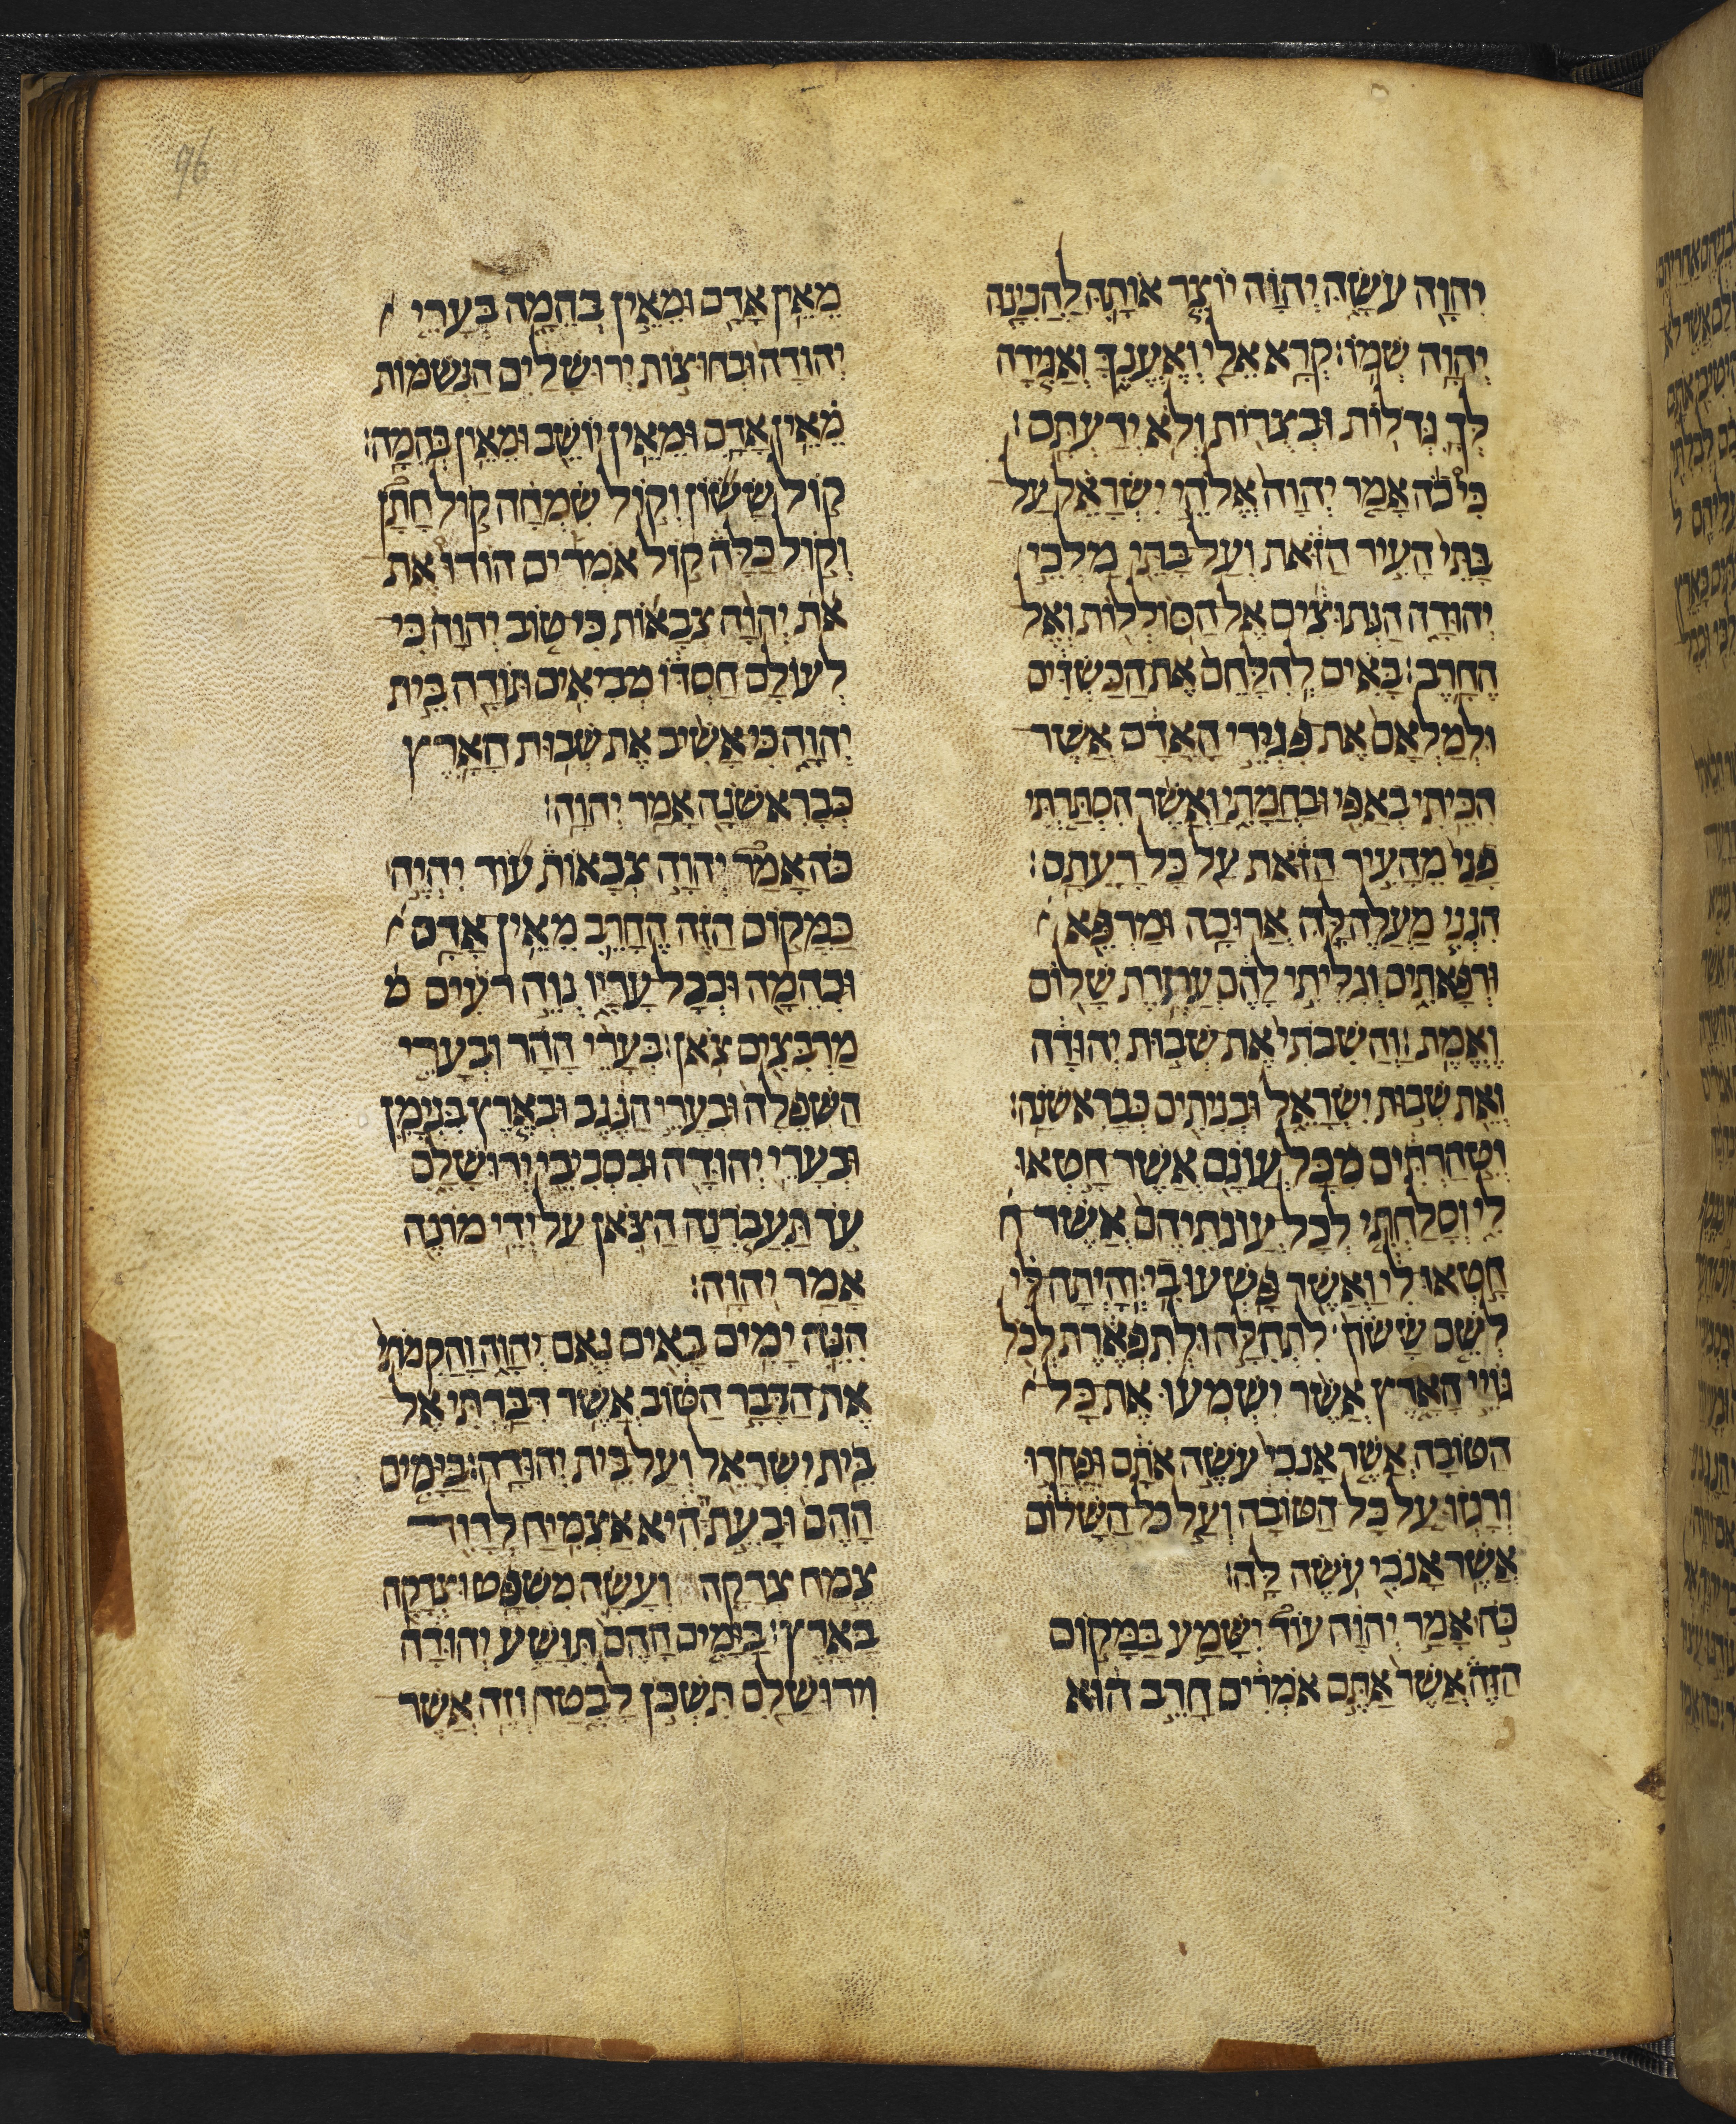 יהוה עשה יהוה יוצר אותה להכינה
יהוה שמו׃ קרא אלי ואענך ואגידה
לך גדלות ובצרות ולא ידעתם׃
כי כה אמר יהוה אלהי ישראל על
בתי העיר הזאת ועל בתי מלכי
יהודה הנתוצים אל הסוללות ואל
החרב׃ באים להלחם את הכשדים
ולמלאם את פגרי האדם אשר
הכיתי באפי ובחמתי ואשר הסתרתי
פני מהעיר הזאת על כל רעתם׃
הנני מעלה לה ארוכה ומרפא
ורפאתים וגליתי להם עתרת שלום
ואמת׃ והשבתי את שבות יהודה
ואת שבות ישראל ובניתים כבראשנה׃
וטהרתים מכל עונם אשר חטאו
לי וסלחתי לכל עונתיהם אשר ח
חטאו לי ואשר פשעו בי׃ והיתה לי
לשם ששון לתהלה ולתפארת לכל
גויי הארץ אשר ישמעו את כל
הטובה אשר אנכי עשה אתם ופחדו
ורגזו על כל הטובה ועל כל השלום
אשר אנכי עשה לה׃
כה אמר יהוה עוד ישמע במקום
הזה אשר אתם אמרים חרב הוא
מאין אדם ומאין בהמה בערי
יהודה ובחוצות ירושלים הנשמות
מאין אדם ומאין יושב ומאין בהמה׃
קול ששון וקול שמחה קול חתן
וקול כלה קול אמרים הודו את
את יהוה צבאות כי טוב יהוה כי
לעולם חסדו מביאים תודה בית
יהוה כי אשיב את שבות הארץ
כבראשנה אמר יהוה׃
כה אמר יהוה צבאות עוד יהיה
במקום הזה החרב מאין אדם
ובהמה ובכל עריו נוה רעים מ
מרבצים צאן׃ בערי ההר ובערי
השפלה ובערי הנגב ובארץ בנימן
ובערי יהודה ובסביבי ירושלם
עד תעברנה הצאן על ידי מונה
אמר יהוה׃
הנה ימים באים נאם יהוה והקמתי
את הדבר הטוב אשר דברתי אל
בית ישראל ועל בית יהודה׃ בימים
ההם ובעת ההיא אצמיח לדויד
צמח צדקה ועשה משפט וצדקה
בארץ׃ בימים ההם תושע יהודה
וירושלם תשכן לבטח וזה אשר